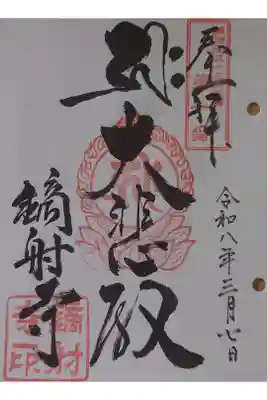 奉拝
令和八年三月七日
大悲殿
鏑射寺
鏑射寺印